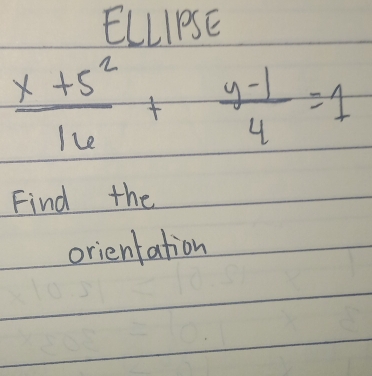 ELLIPSE
x + 5² / 16 + y - 1 / 4 = 1
Find the
orientation